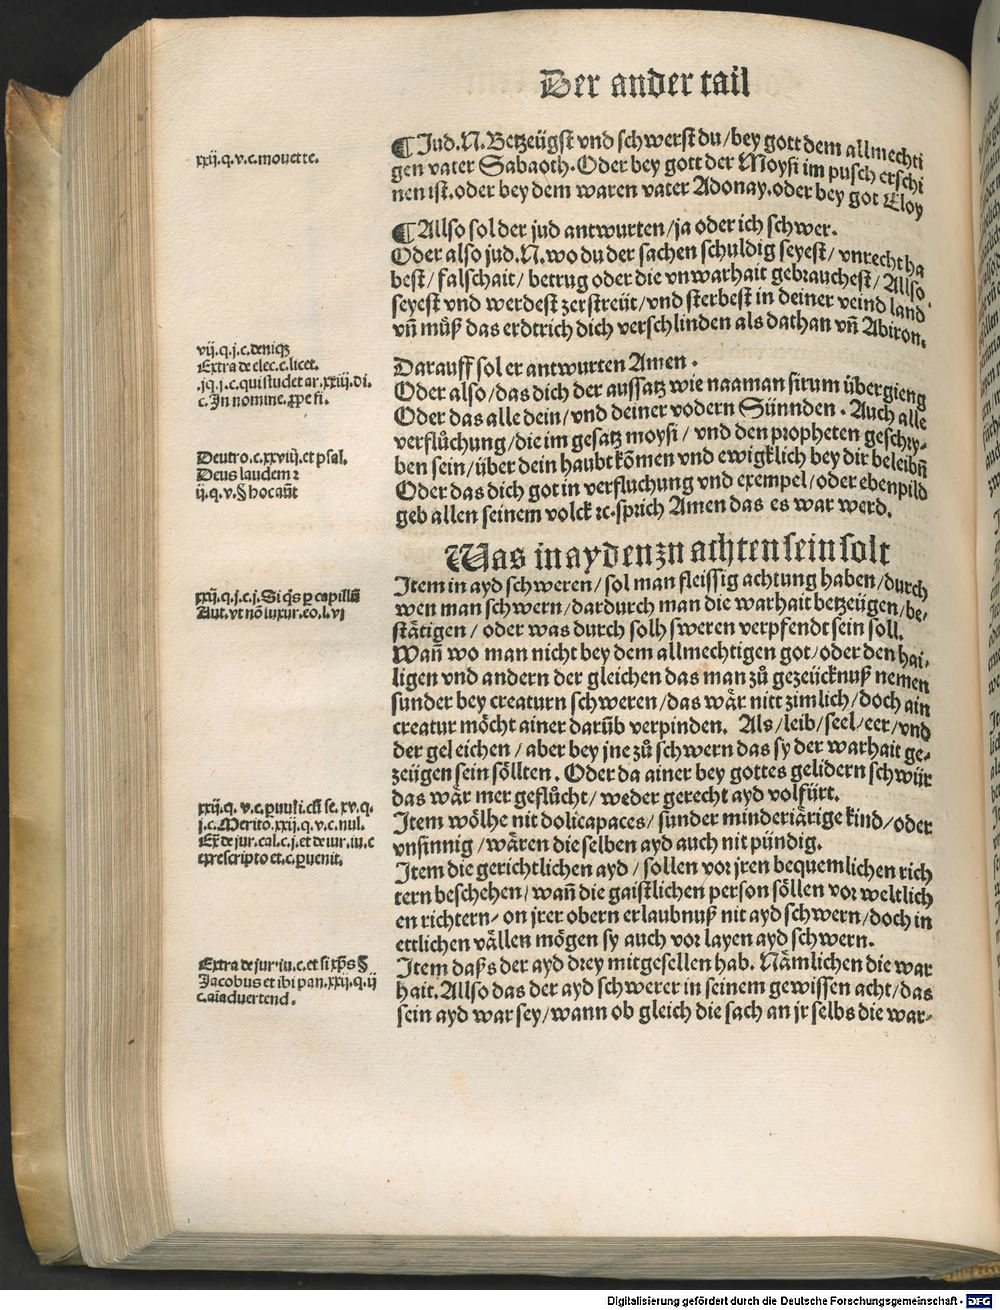 Der ander tail
xxij.q.v.c.mouette.
¶ Jud.N.Betzeügst vnd schwerst du/bey gott dem allmechti
gen vater Sabaoth.Oder bey gott der Moysi im pusch erschi
nen ist.oder bey dem waren vater Adonay.oder bey got Eloy
¶ Allso sol der jud antwurten/ja oder ich schwer.
Oder also jud.N.wo du der sachen schuldig seyest/vnrecht ha
best/falschait/betrug oder die vnwarhait gebrauchest/Allso
seyest vnd werdest zerstreüt/vnd sterbest in deiner veind land
vñ müß das erdtrich dich verschlinden als dathan vñ Abiron.
vij.q.j.c.deniqȝ
Extra de elec.c.licet.
.jq.j.c.qui studet ar.xxiij.di.
c.In nomine.
Darauff sol er antwurten Amen.
Oder also/das dich der aussatz wie naaman sirum übergieng
Oder das alle dein/vnd deiner vodern Sünnden. Auch alle
verflůchung/die im gesatz moysi/vnd den propheten geschry-
ben sein/über dein haubt kōmen vnd ewigklich bey dir beleibñ
Oder das dich got in verfluchung vnd exempel/oder ebenpild
geb allen seinem volck ꝛc.sprich Amen das es war werd.
Deutro.c.xxviij.et psal.
Deus laudem ꝛ
ij.q.v.§ hoc aūt
Was in ayden zu achten sein solt
xxij.q.j.c.j.Si q̃s ꝑ capillũ
Aut.vt nō luxur.co.l.vj
Item in ayd schweren/sol man fleissig achtung haben/durch
wen man schwern/dardurch man die warhait betzeügen/be-
stätigen/oder was durch solh sweren verpfendt sein soll.
Wañ wo man nicht bey dem allmechtigen got/oder den hai-
ligen vnd andern der gleichen das man zů gezeücknuß nemen
sunder bey creaturn schweren/das wär nitt zimlich/doch ain
creatur möcht ainer darüb verpinden. Als/leib/seel/eer/vnd
der geleichen/aber bey jne zů schwern das sy der warhait ge-
zeügen sein söllten. Oder da ainer bey gottes gelidern schwür
das wär mer geflůcht/weder gerecht ayd volfürt.
xxij.q.v.c.ꝑuuli.cũ se.xv.q.
j.c.Merito.xxij.q.v.c.nul.
Ex̃ de jur.cal.c.j.et de iur.iu.c
exrescripto et.c.ꝑuenit.
Item wölhe nit dolicapaces/sunder minderjärige kind/oder
vnsinnig/wären die selben ayd auch nit pündig.
Item die gerichtlichen ayd/sollen vor jren bequemlichen rich
tern beschehen/wañ die gaistlichen person söllen vor weltlich
en richtern/on jrer obern erlaubnuß nit ayd schwern/doch in
ettlichen vällen mögen sy auch vor layen ayd schwern.
Extra de jur.iu.c.et si xp̃s §
Jacobus et ibi pan.xxij.q.ij
c.aīaduertend.
Item dass der ayd drey mitgesellen hab. Nämlichen die war
hait.Allso das der ayd schwerer in seinem gewissen acht/das
sein ayd war sey/wann ob gleich die sach an jr selbs die war-
Digitalisierung gefördert durch die Deutsche Forschungsgemeinschaft - DFG